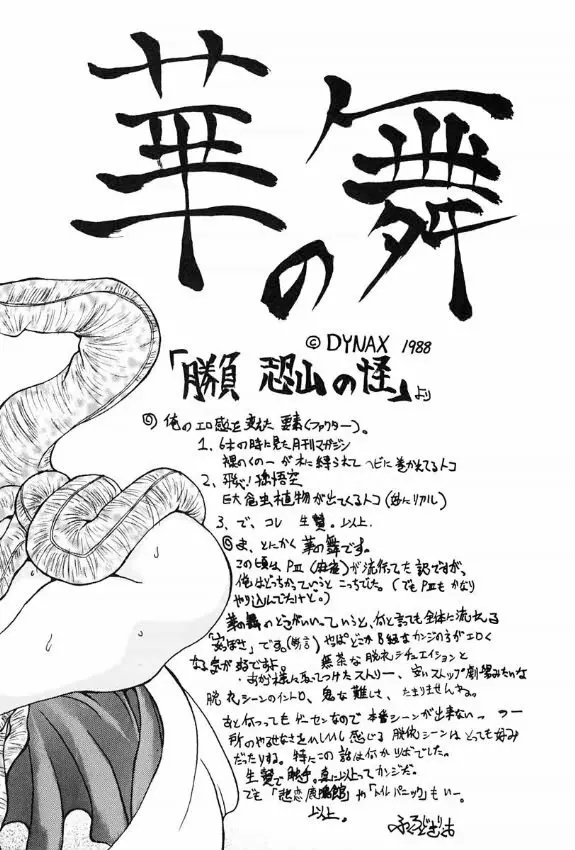 華の舞
© DYNAX 1988
「勝負 恐山の怪」より
◎俺のエロ感を変えた要素(ファクター)。
1. 6才の時に見た月刊マガジン
裸のくの一が木に縛られてヘビに巻かれてるトコ
2. 飛べ!孫悟空
巨大食虫植物が出てくるトコ(妙にリアル)
3. で、コレ 生贄。以上。
◎ま、とにかく華の舞です。
この頃はPⅢ(麻雀)が流行てた訳ですが、
俺はどっちかっていうとこっちでした。(でもPⅢもかなり
やり込んでたけど。)
華の舞のどこがいいっていうと、何と言っても全体に流れる
です。(断言) やっぱどこかB級なカンジの方がエロく
なる気が好ですよ。 無茶な脱衣シチュエイションと
あから様に取ってつけたストリー、安いストップ劇場みたいな
脱衣シーンのイントロ、鬼な難しさ、たまりませんなあ。
あと何つってもゲーセンなので本番シーンが出来ないっつー
所のやるせなさをひしひし感じる脱衣シーンはとっても好み
だったりする。特にこの話は何かりばでした。
生贄で触手。真に以上ってカンジだ。
でも「 館」や「 パニック」もいー。
以上。